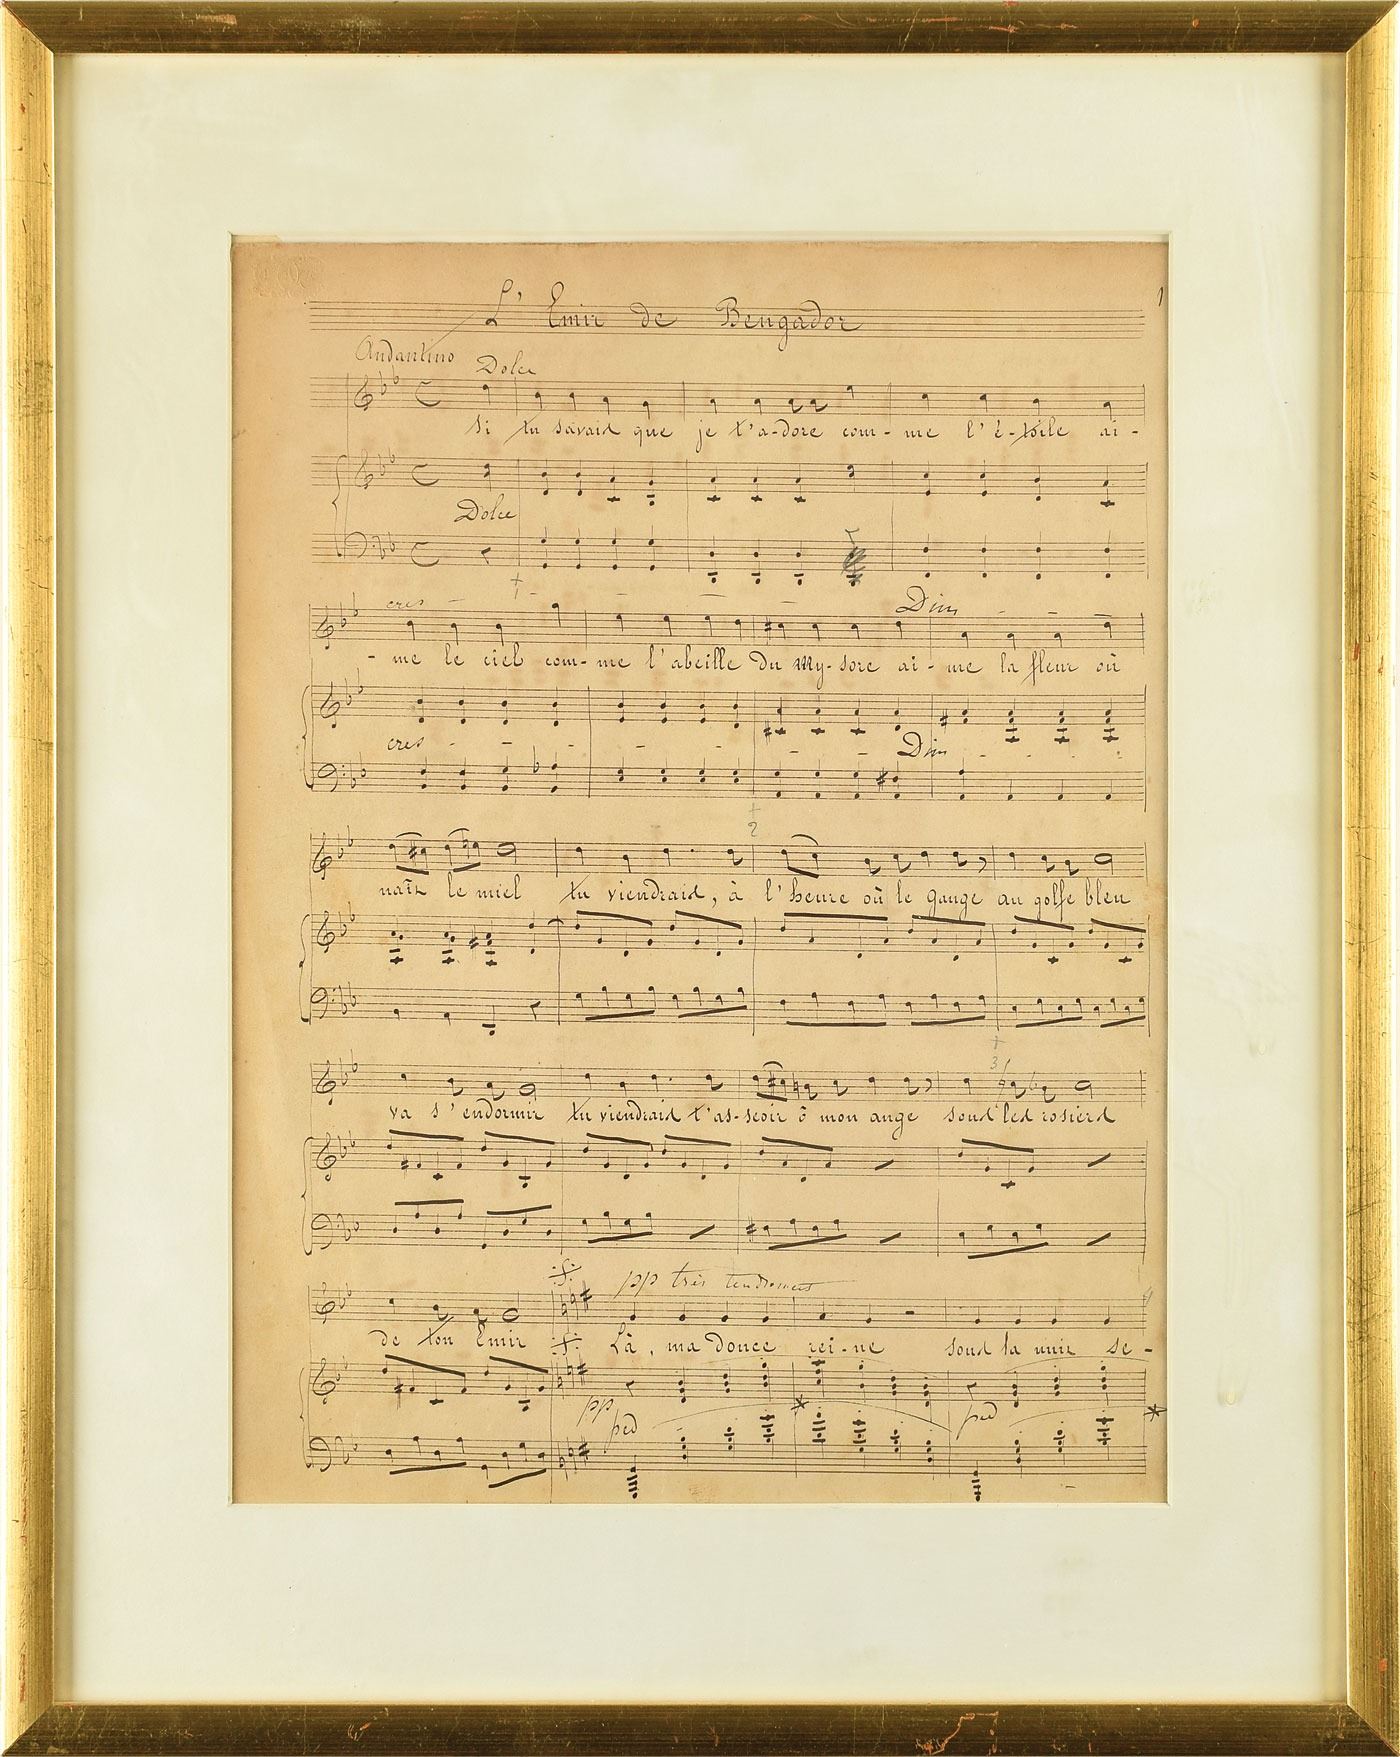 1
L' Emir de Bengador
Andantino
Dolce
si tu savais que je t'a-dore com-me l'é-toile ai-
Dolce
1
cres - Dim
-me le ciel com-me l'abeille du My-sore ai-me la fleur où
cres - - - - - - Dim - - -
2
naît le miel tu viendrais, à l'heure où le gange au golfe bleu
3
va s'endormir tu viendrais t'as-seoir ô mon ange sous les rosiers
pp très tendrement
de ton Emir Là, ma douce rei-ne sous la nuit se-
pp
ped
ped